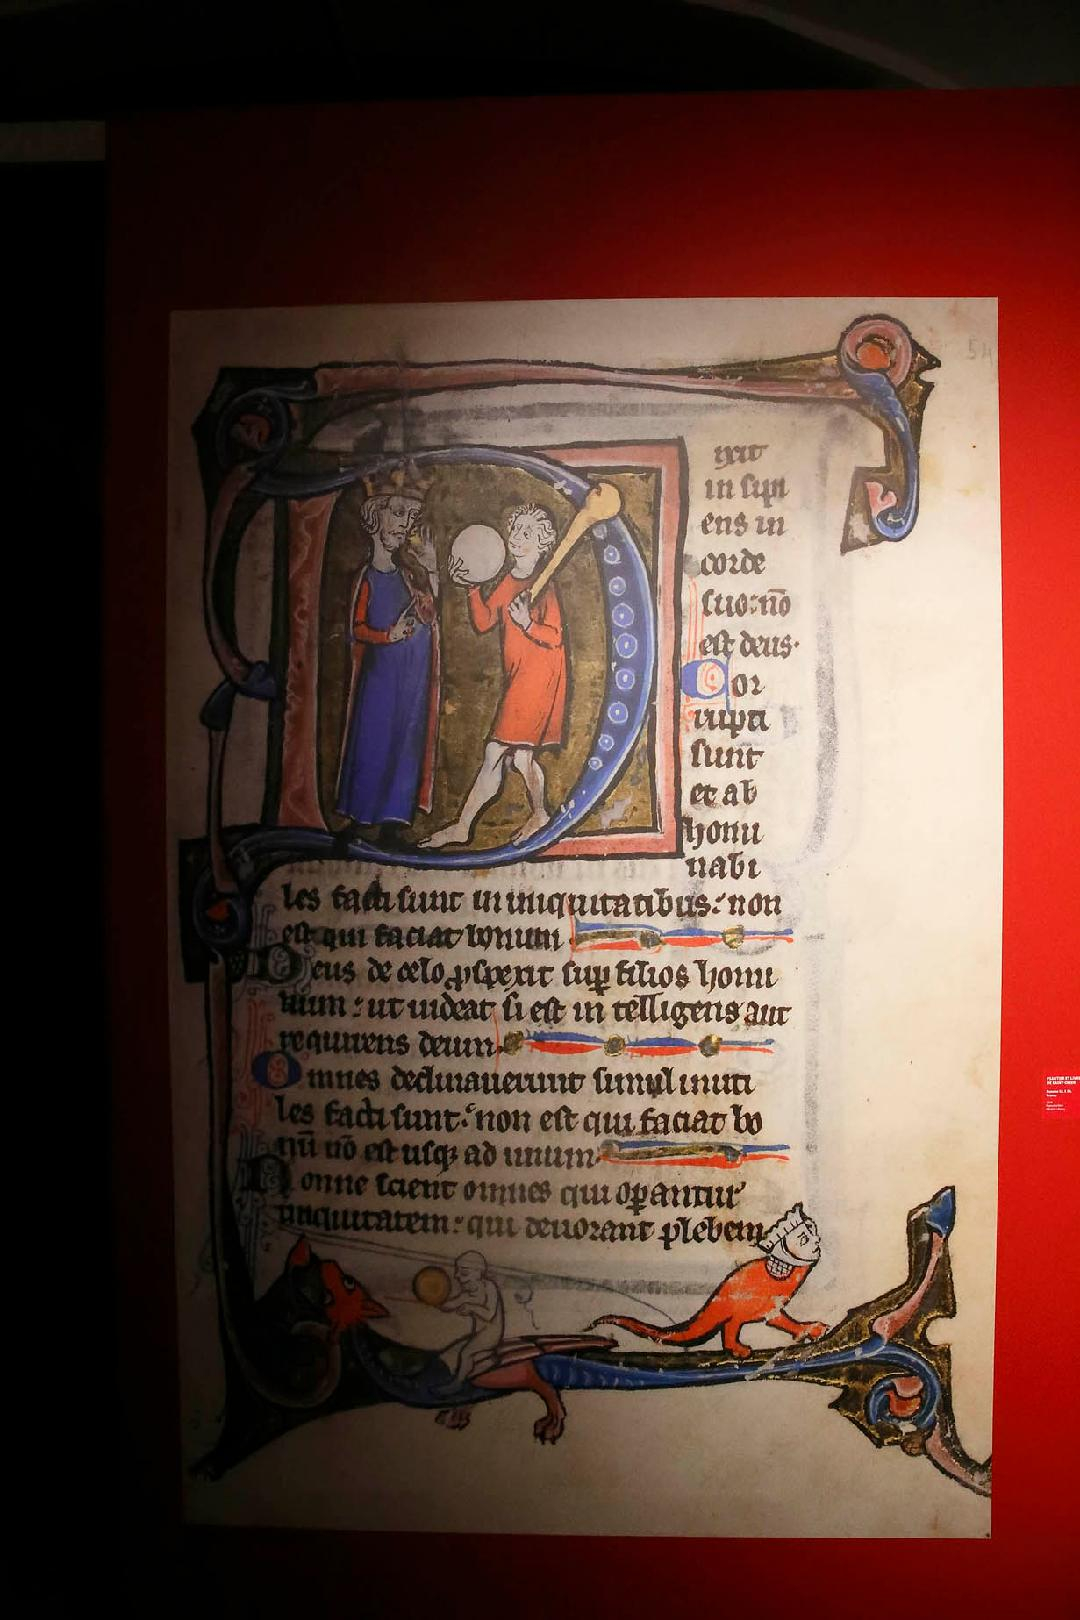 ixit
in sipi
ens in
corde
suo: nō
est deus.
Cor
rupti
sunt
et ab
homi
nabi
les facti sunt in iniquitatibus: non
est qui faciat bonum
Deus de celo ꝓspexit suꝑ filios homi
num: ut uideat si est in telligens aut
requirens deum.
Omnes declinauerunt simul inuti
les facti sunt: non est qui faciat bo
nū nō est usqꝫ ad unum
Nonne scient omnes qui oꝑantur
iniquitatem: qui deuorant plebem
54